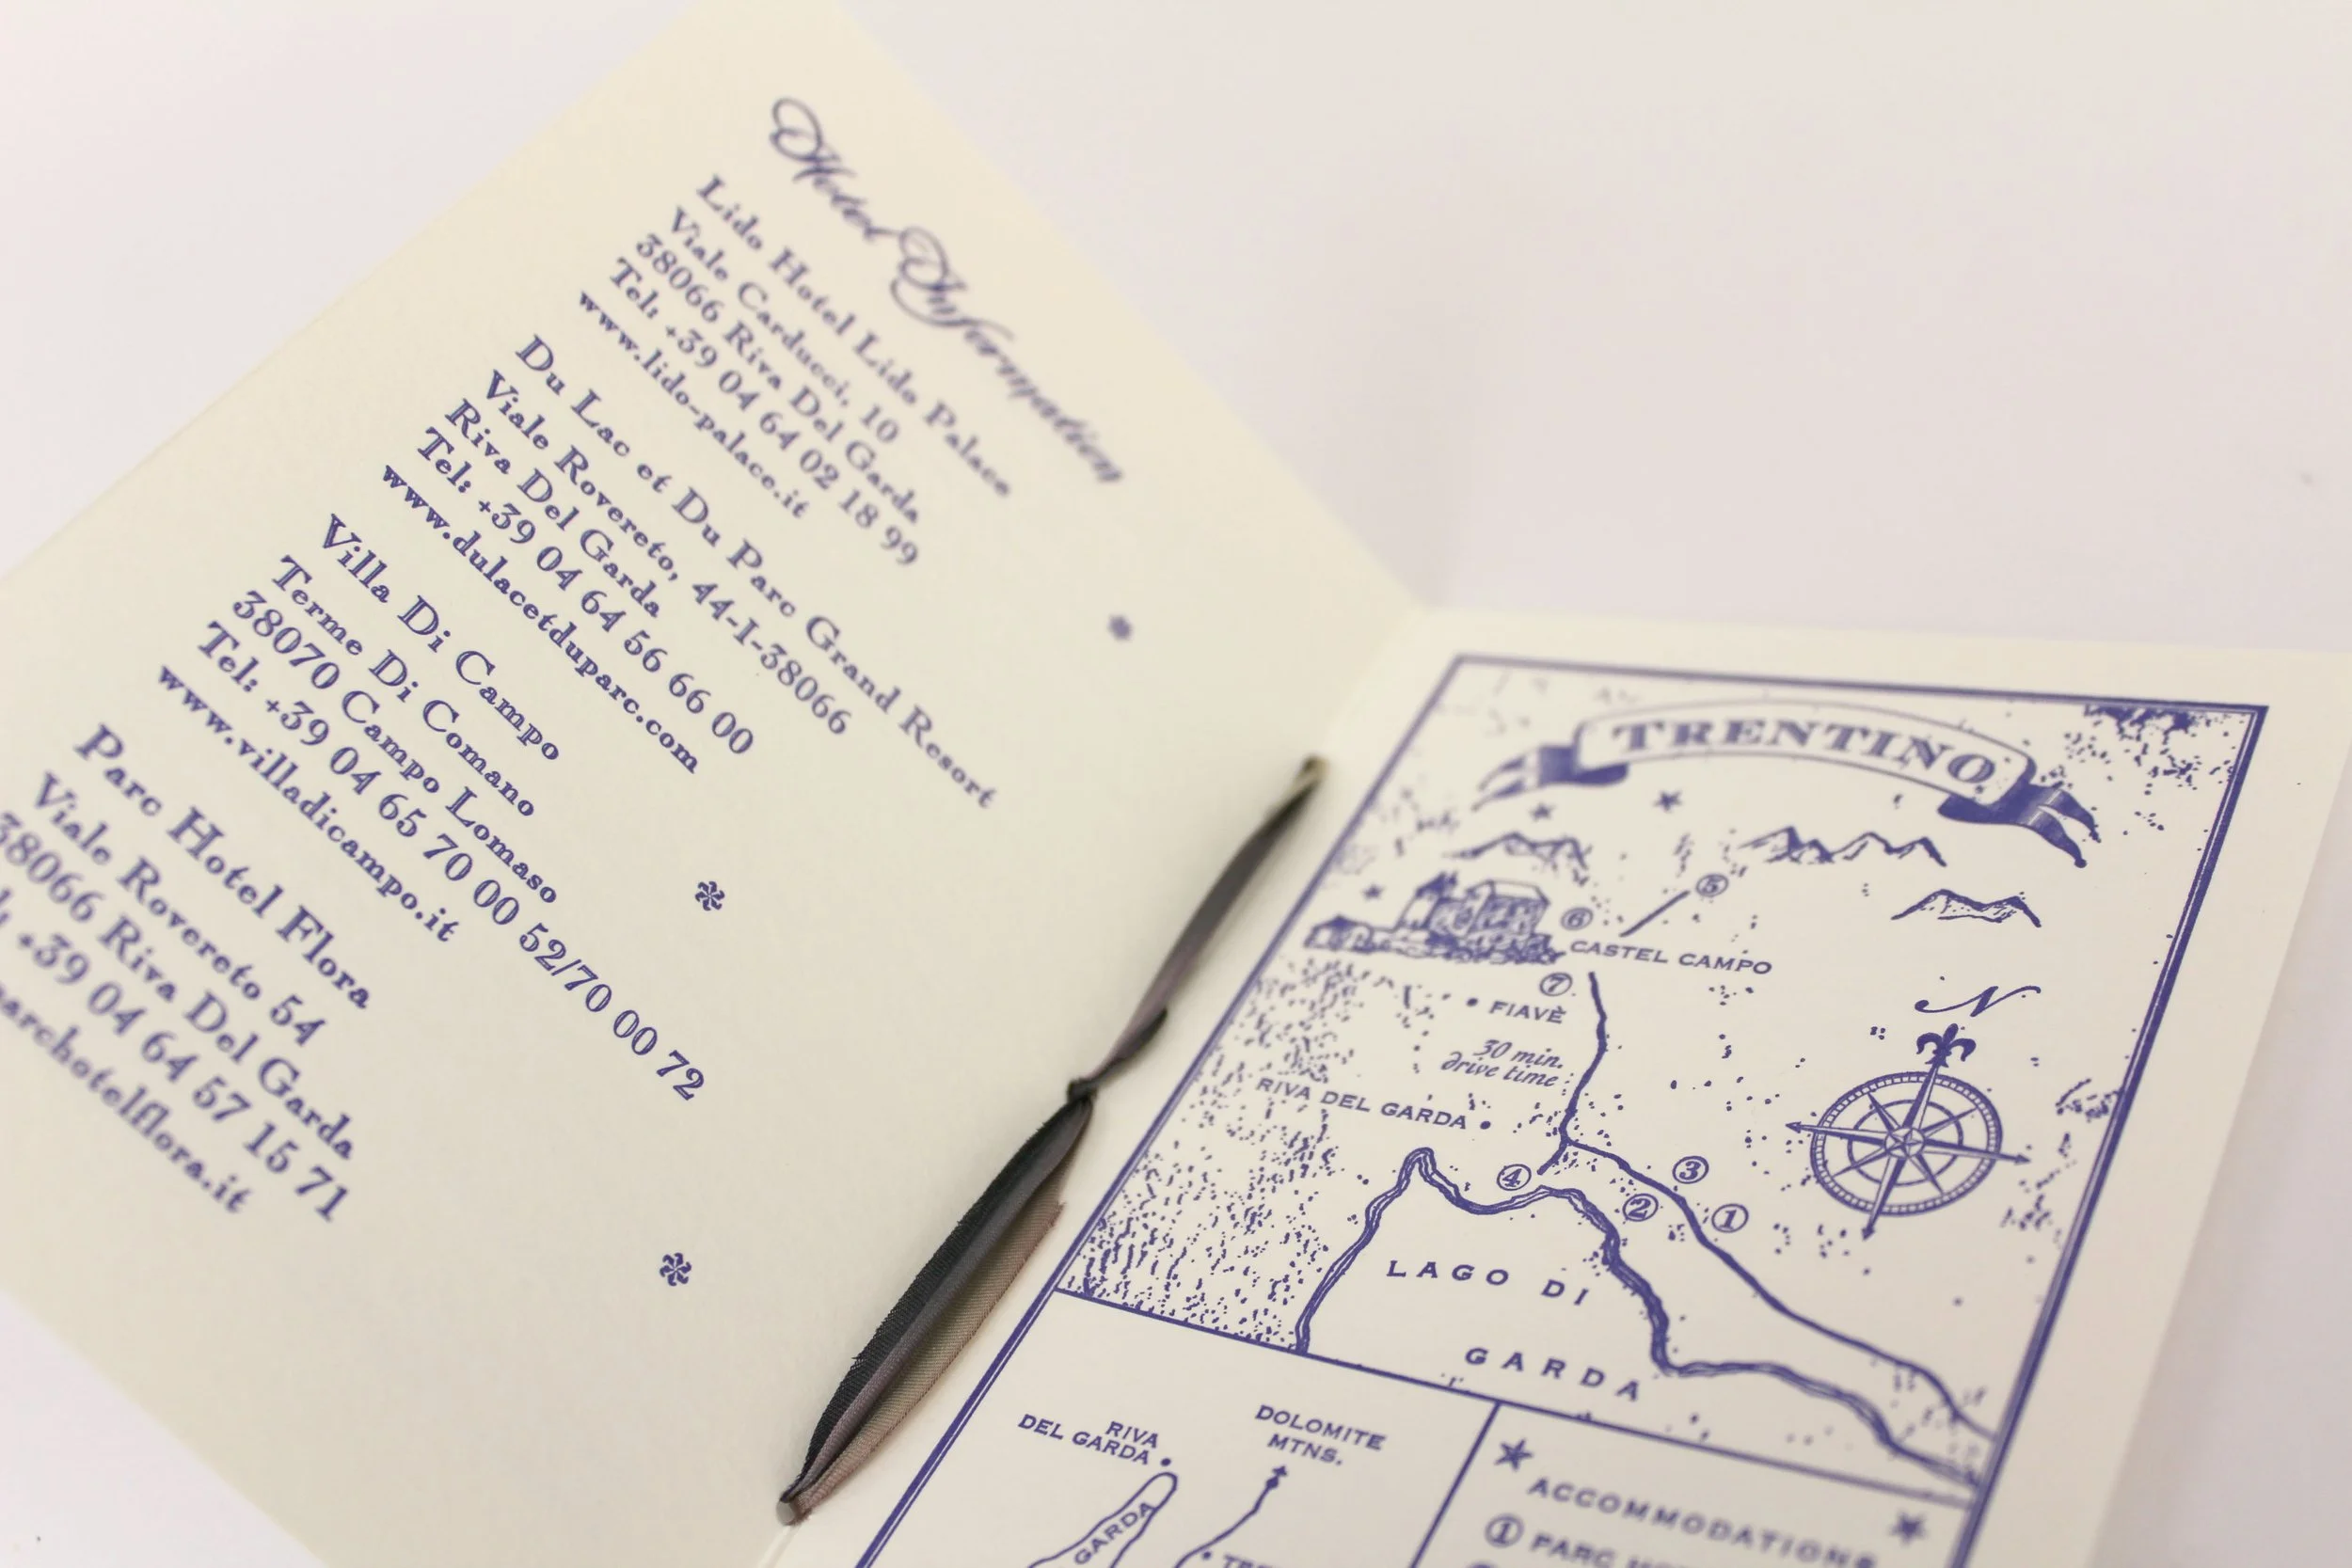 Hotel Information
Lido Hotel Lido Palace
Viale Carducci, 10
38066 Riva Del Garda
Tel: +39 04 64 02 18 99
www.lido-palace.it
Du Lac et Du Parc Grand Resort
Viale Rovereto, 44-I-38066
Riva Del Garda
Tel: +39 04 64 56 66 00
www.dulacetduparc.com
Villa Di Campo
Terme Di Comano
38070 Campo Lomaso
Tel: +39 04 65 70 00 52/70 00 72
www.villadicampo.it
Parc Hotel Flora
Viale Rovereto 54
38066 Riva Del Garda
+39 04 64 57 15 71
archotelflora.it
TRENTINO
5
6
CASTEL CAMPO
7
FIAVÈ
N
30 min.
drive time
RIVA DEL GARDA
4
3
2
1
LAGO DI
GARDA
RIVA
DEL GARDA
DOLOMITE
MTNS.
GARDA
ACCOMMODATIONS
1 PARC